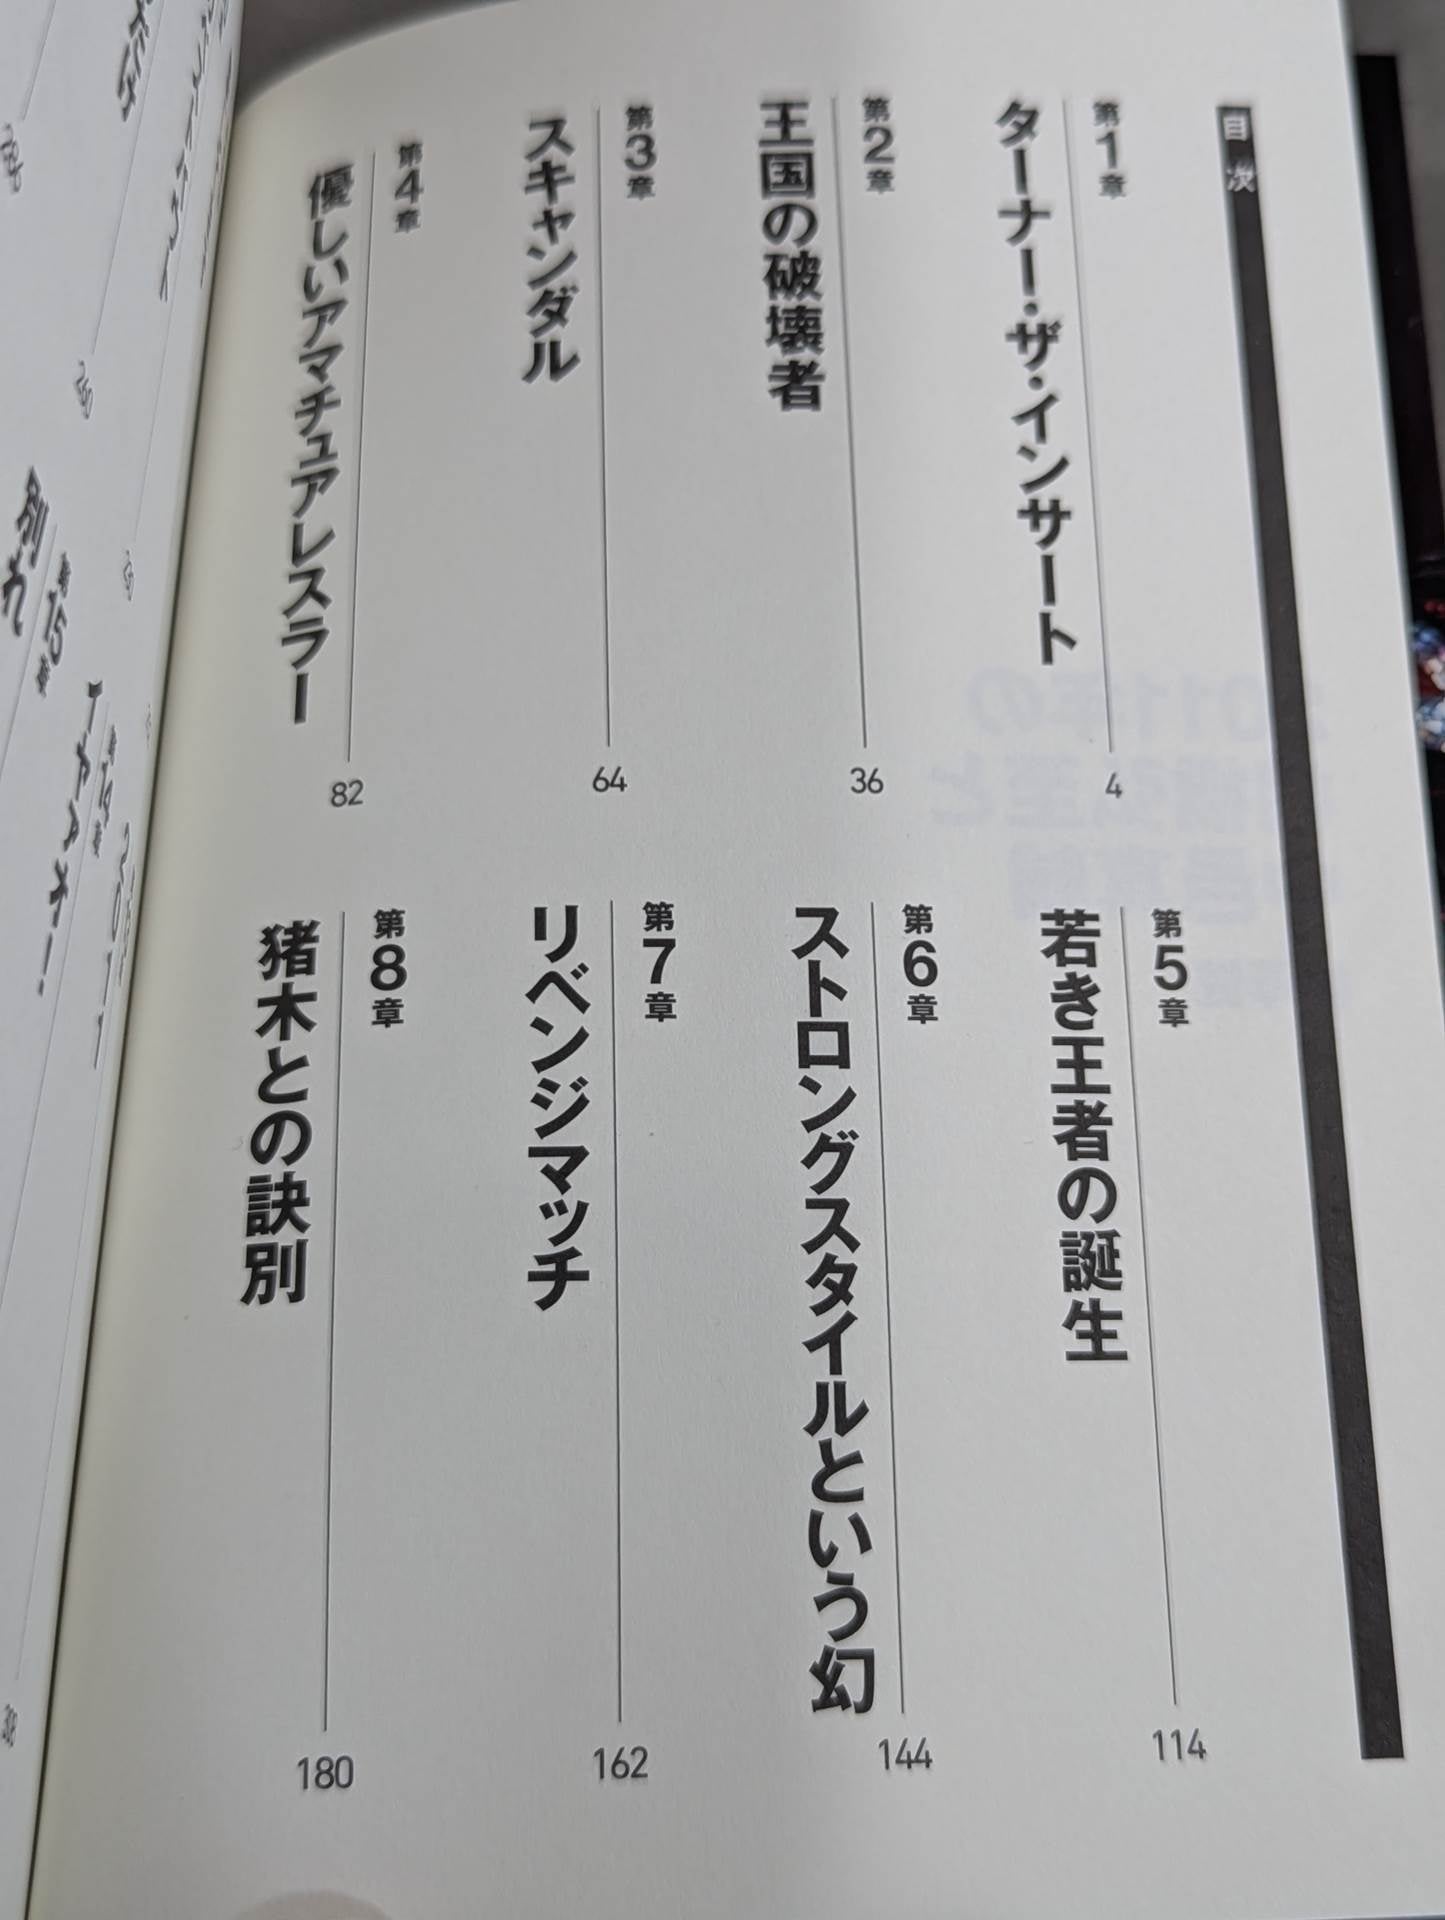 目次
第1章
ターナー・ザ・インサート
4
第2章
王国の破壊者
36
第3章
スキャンダル
64
第4章
優しいアマチュアレスラー
82
第5章
若き王者の誕生
114
第6章
ストロングスタイルという幻
144
第7章
リベンジマッチ
162
第8章
猪木との訣別
180
第15章